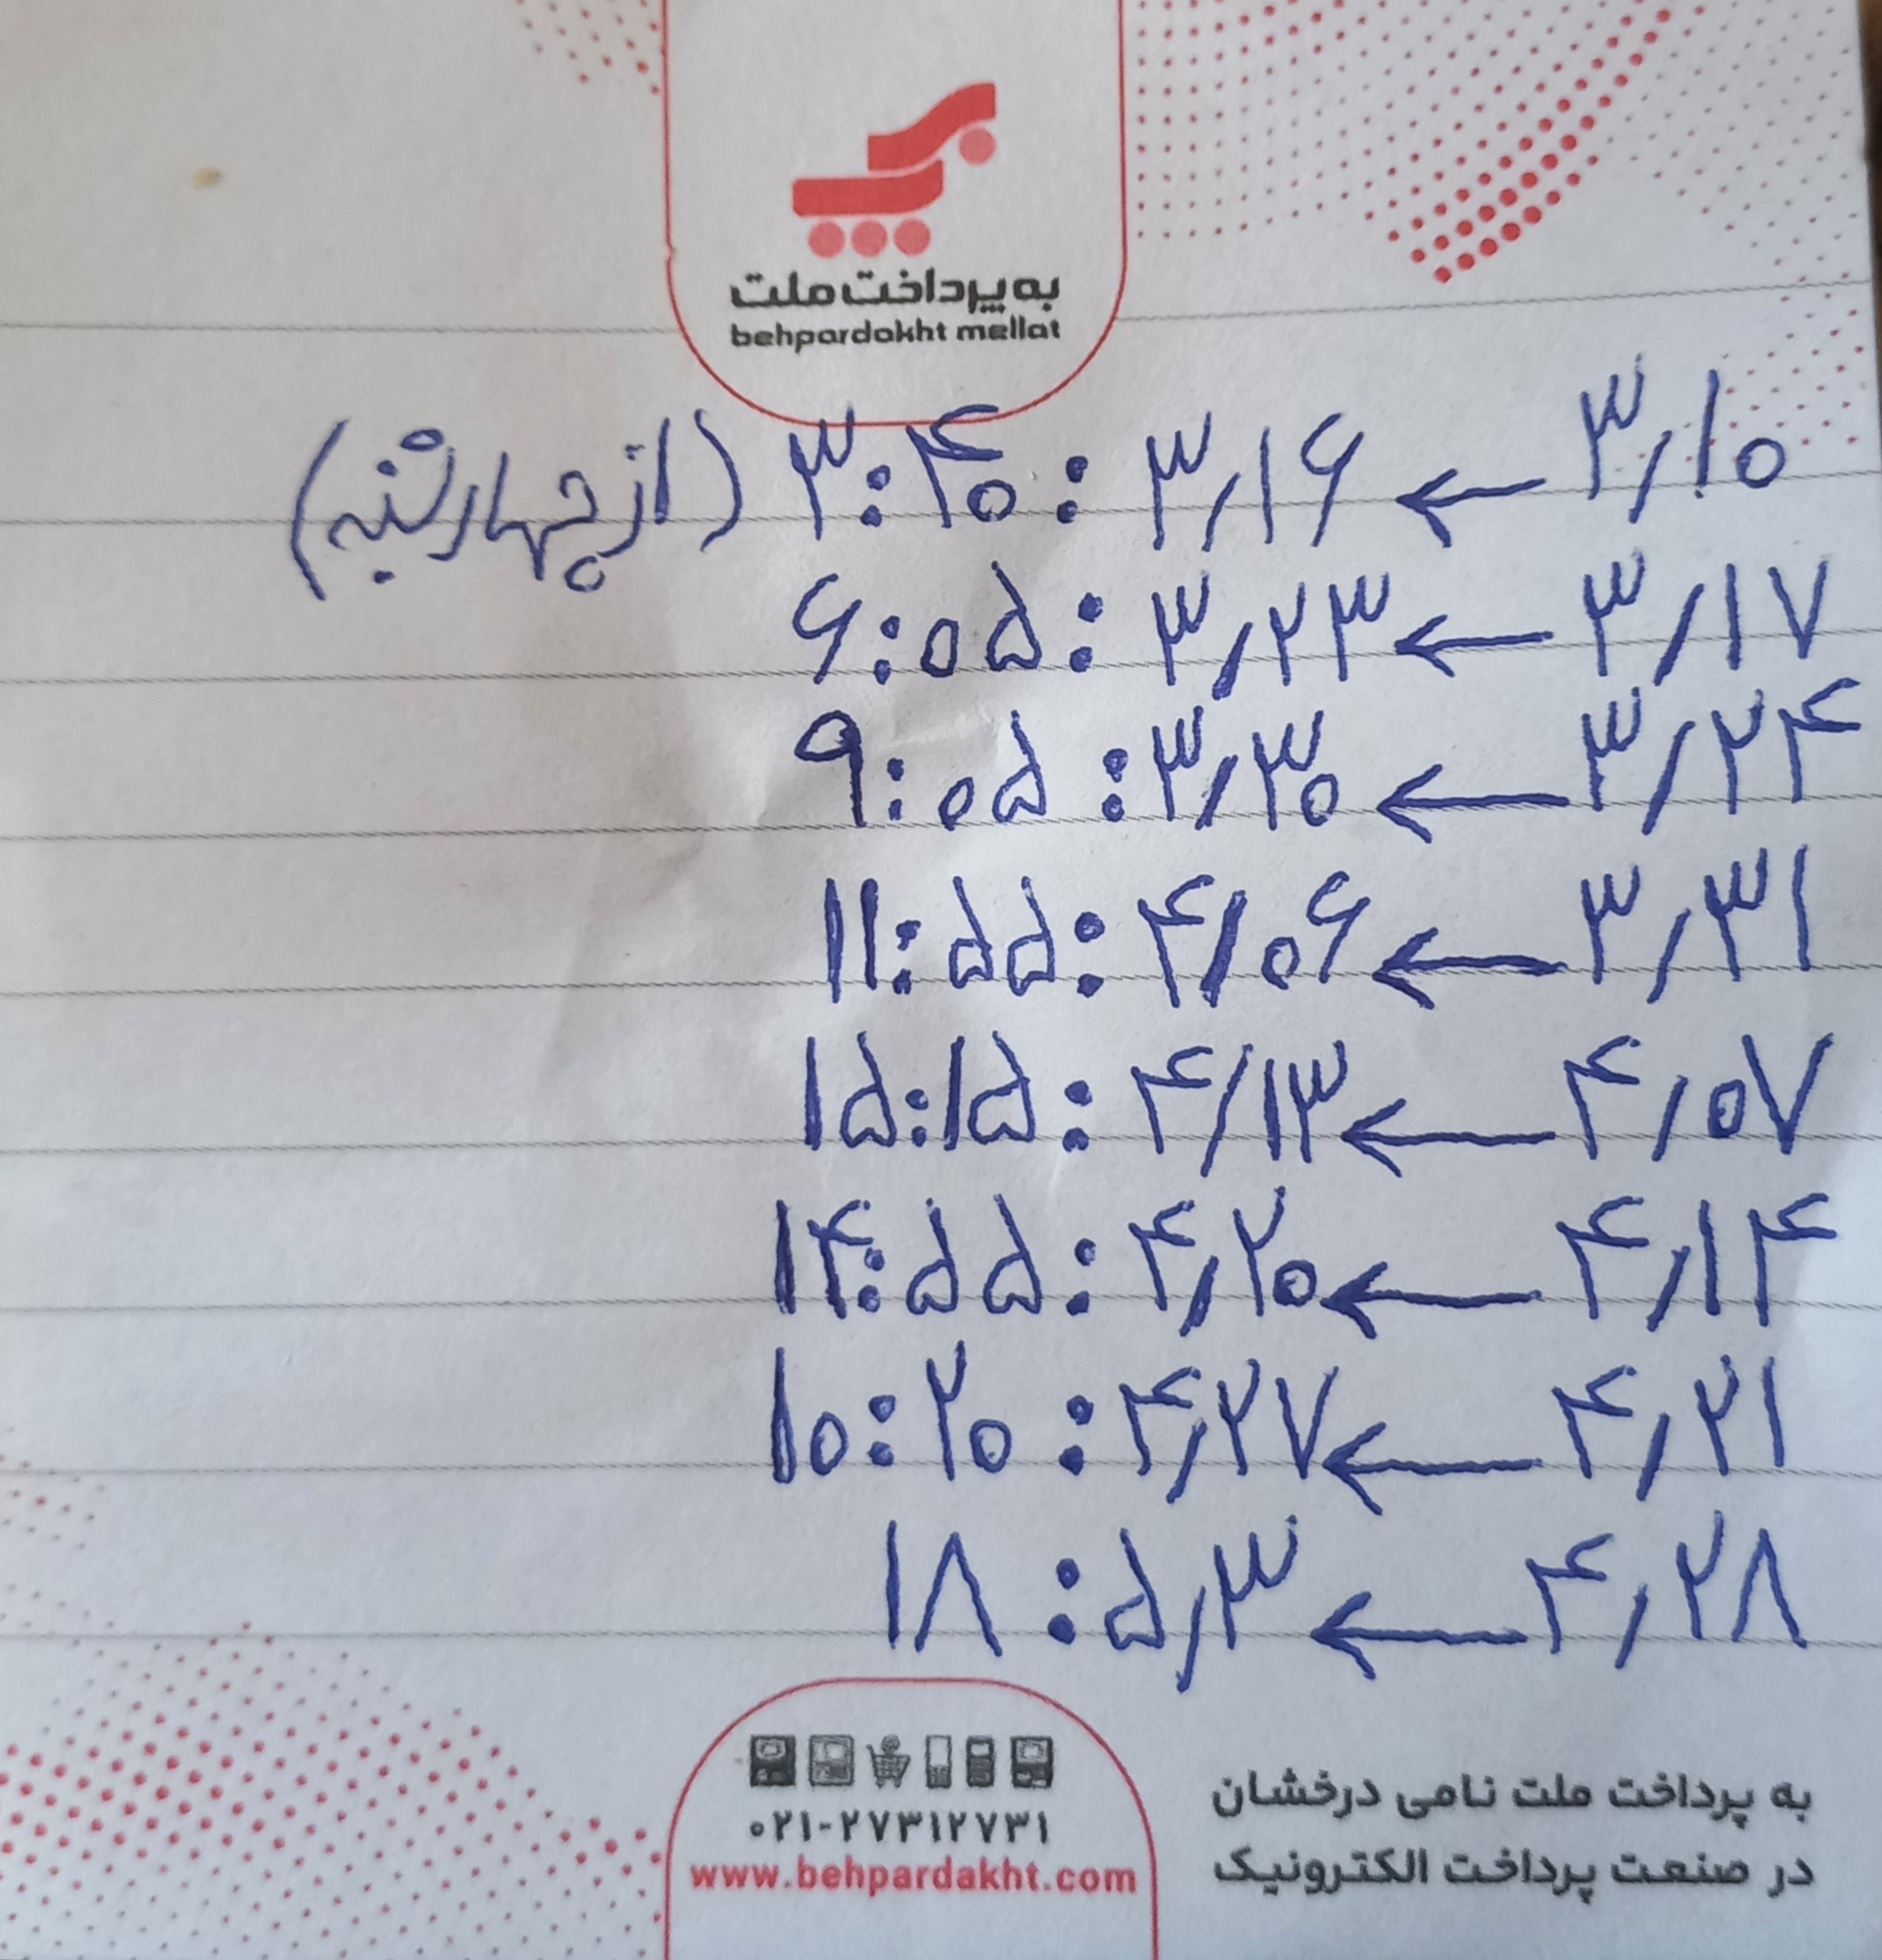 به پرداخت ملت
behpardakht mellat
۳/۱۰ ← ۳/۱۶ : ۳:۴۰ (از چهارشنبه)
۳/۱۷ ← ۳/۲۳ : ۶:۰۵
۳/۲۴ ← ۳/۳۰ : ۹:۰۵
۳/۳۱ ← ۴/۰۶ : ۱۱:۵۵
۴/۰۷ ← ۴/۱۳ : ۱۵:۱۵
۴/۱۴ ← ۴/۲۰ : ۱۴:۵۵
۴/۲۱ ← ۴/۲۷ : ۱۰:۲۰
۴/۲۸ ← ۵/۳ : ۱۸
به پرداخت ملت نامی درخشان
در صنعت پرداخت الکترونیک
۰۲۱-۲۷۳۱۲۷۳۱
www.behpardakht.com